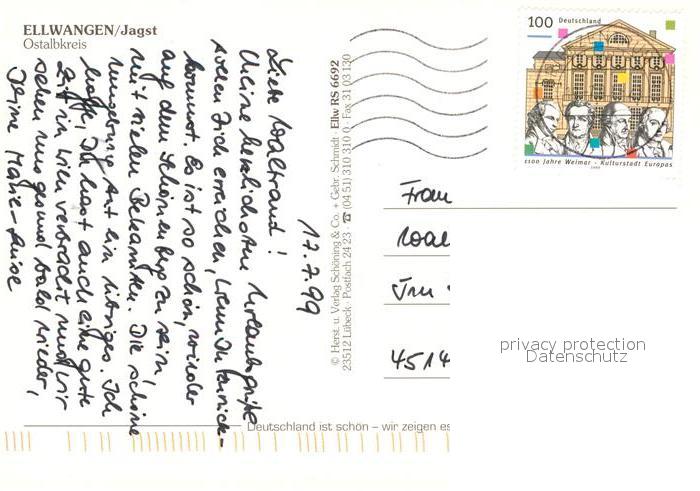 ELLWANGEN/Jagst
Ostalbkreis
17.7.99
Liebe Waltraud!
Meine herzlichsten Urlaubsgrüße
sollen Dich erreichen, wenn Du zurück-
kommst. Es ist so schön, wieder
auf dem Schönenberg zu sein,
mit vielen Bekannten. Die schöne
Umgebung tut ein übriges. Ich
hoffe, Du hast auch eine gute
Zeit in Wien verbracht und wir
sehen uns gesund bald wieder,
Deine Marie-Luise
© Herst. u. Verlag Schöning & Co. + Gebr. Schmidt
23512 Lübeck · Postfach 24 23 · ☎ (04 51) 310 310 · Fax 31 03 130
Ellw RS 6692
100 Deutschland
1100 Jahre Weimar - Kulturstadt Europas
1999
Frau
4514
privacy protection
Datenschutz
Deutschland ist schön – wir zeigen es